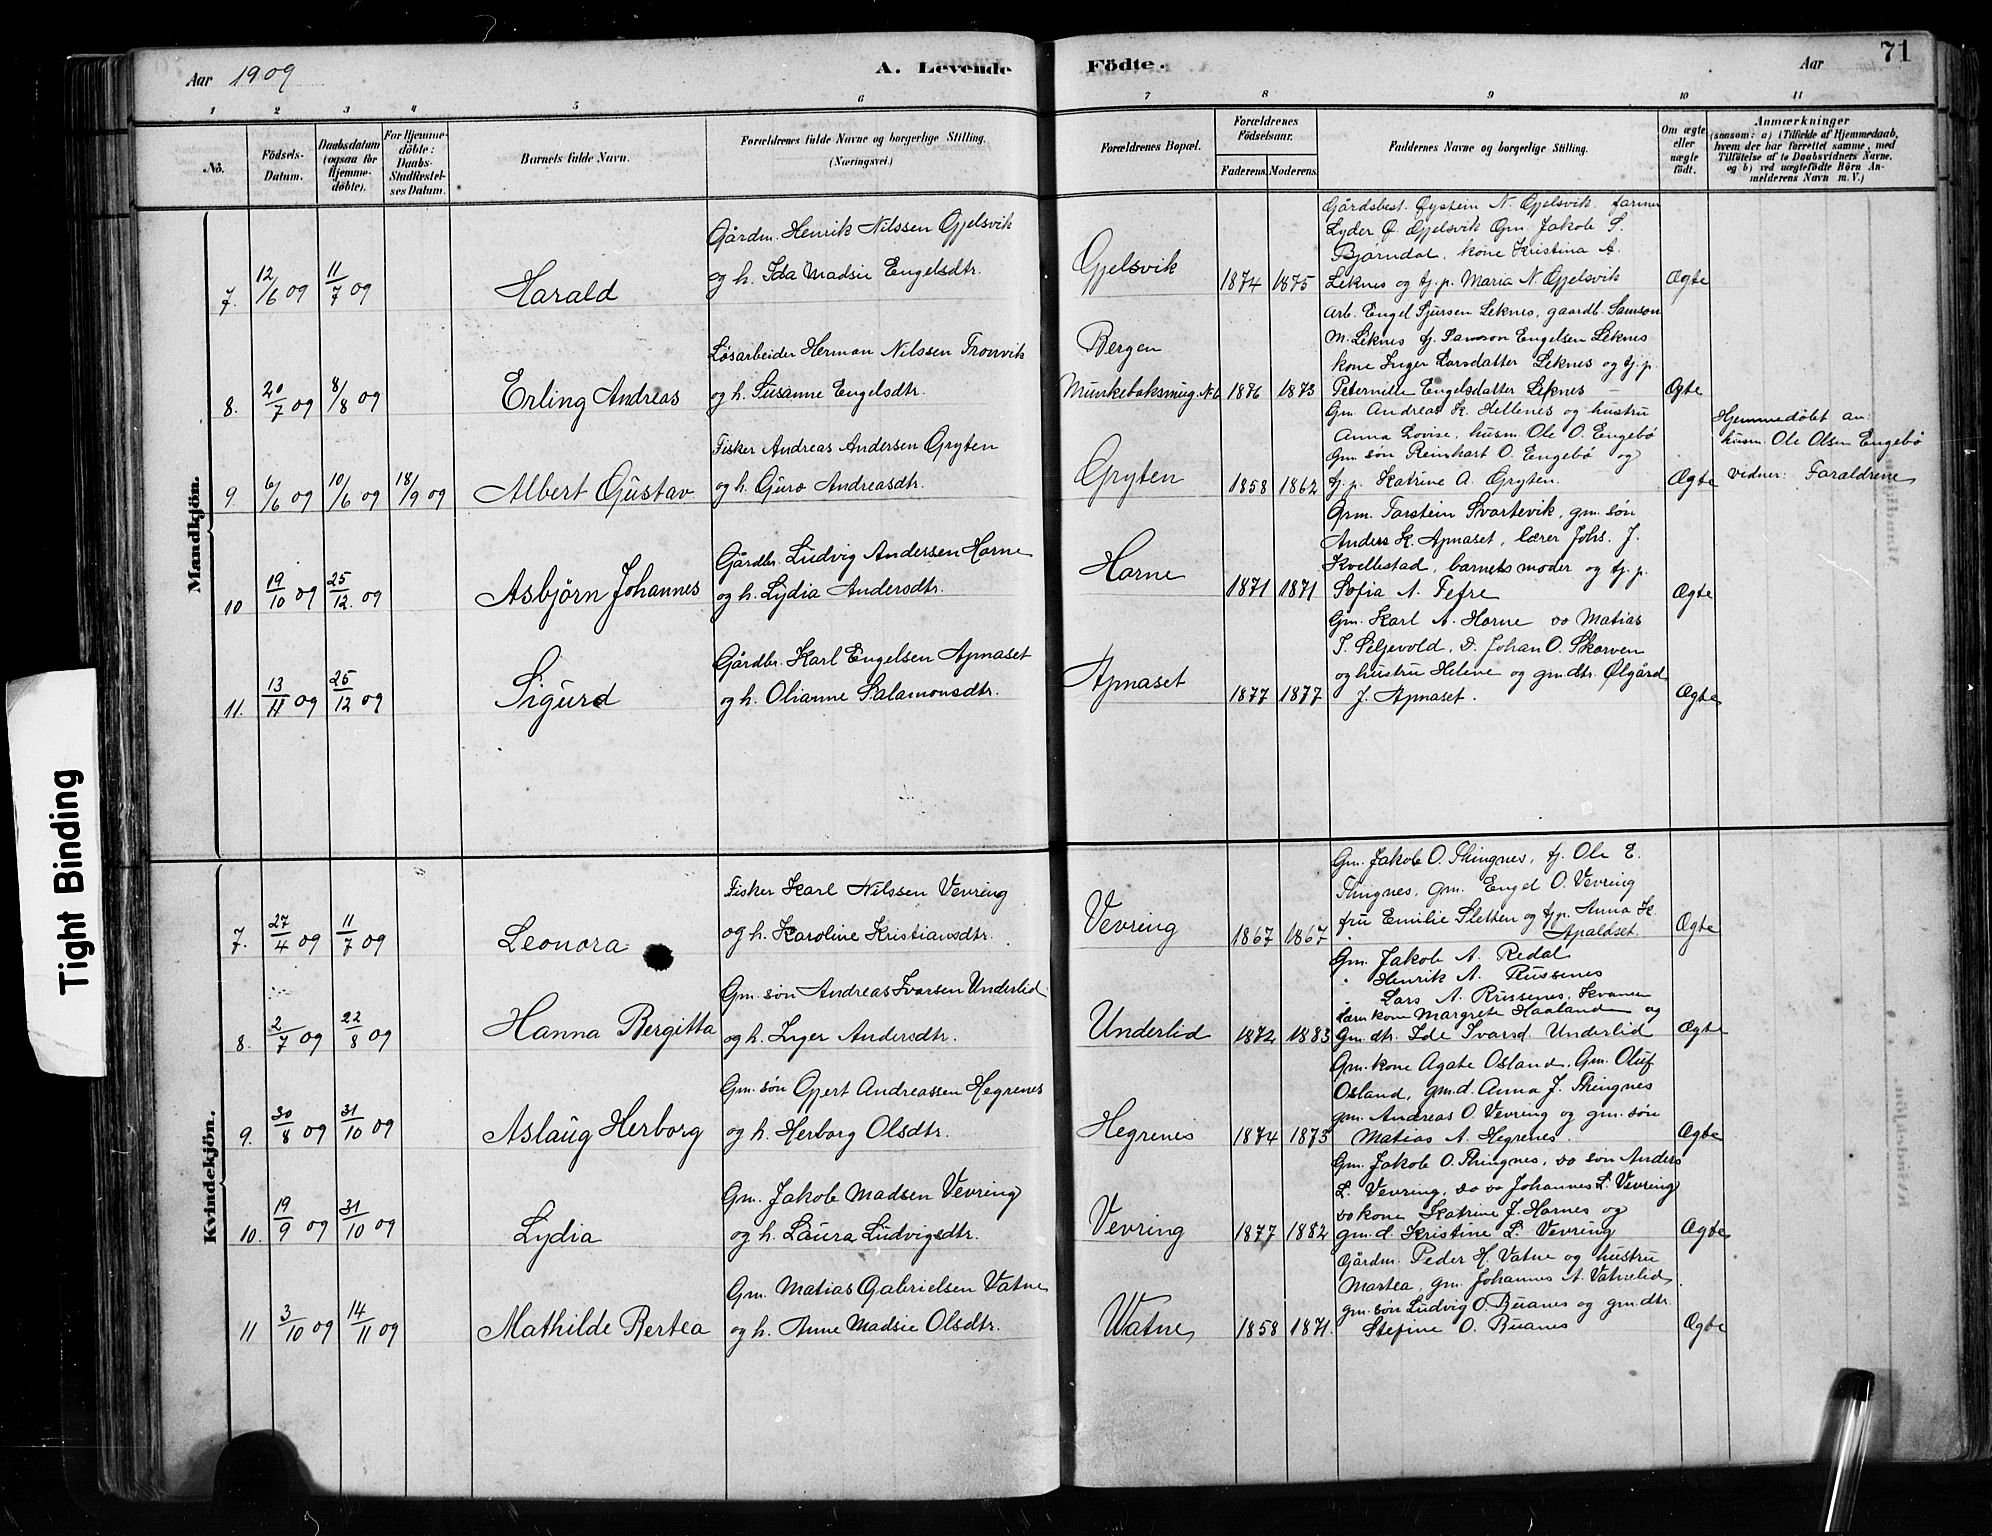 71
Aar 1909
A. Levende Födte.
Aar
1 2 3 4 5 6 7 8 9 10 11
No.
Födsels-Datum.
Daabsdatum (ogsaa for Hjemme-döbte).
For Hjemme-döbte: Daabs-Stadfæstelses Datum.
Barnets fulde Navn.
Forældrenes fulde Navne og borgerlige Stilling. (Næringsvei.)
Forældrenes Bopæl.
Forældrenes Födselsaar.
Faderens. Moderens.
Faddernes Navne og borgerlige Stilling.
Om ægte eller uægte født.
Anmærkninger
(saasom: a) i Tilfælde af Hjemmedaab,
hvem der har forrettet samme, med
Tilföielse af to Daabsvidners Navne,
og b) ved uægtefödte Börn An-
melderens Navn m. V.)
Mandkjön.
7. 12/6 09 11/7 09 Harald
Gårdm. Henrik Nilssen Gjelsvik
og h. Ida Madsie Engelsdtr.
Gjelsvik 1874 1875
Gårdsbest. Øystein N. Gjelsvik, farmer
Lyder Ø. Gjelsvik Gm. Jakob S.
Bjørndal, kone Kristina A.
Leknes og tj. p. Maria N. Gjelsvik
Ægte
8. 20/7 09 8/8 09 Erling Andreas
Løsarbeider Herman Nilssen Tronvik
og h. Susanne Engelsdtr.
Bergen
Munkebaksmug. N. 6 1876 1873
Arb. Engel Sjursen Leknes, gaardb. Samson
M. Leknes tj. Samson Engelsen Leknes
kone Inger Larsdatter Leknes og tj. p.
Petervilde Engelsdatter Leknes
Ægte
9 6/6 09 10/6 09 18/9 09 Albert Gustav
Fisker Andreas Andersen Gryten
og h. Guro Andreasdtr.
Gryten 1858 1862
Gm. Andreas K. Hellenes og hustru
Anna Lovise, husm. Ole O. Engebø
Gm søn Reinhart O. Engebø og
tj. p. Katrine A. Gryten.
Ægte
Hjemmedøbt av:
husm. Ole Olsen Engebø
vidner: Forældrene
10 19/10 09 25/12. 09 Asbjörn Johannes
Gårdbr. Ludvig Andersen Horne
og h. Lydia Andersdtr.
Horne 1871 1871
Grm. Torstein Svartevik, gm. søn
Anders K. Apnaset, lærer Johs. J.
Kvellestad, barnets moder og tj. p.
Sofia A. Tefre
Ægte
11. 13/11 09 25/12 09 Sigurd
Gårdbr. Karl Engelsen Apnaset
og h. Olianne Salamonsdtr.
Apnaset 1877 1877
Gm. Karl A. Horne do Matias
T. Seljevold, D. Johan O. Skorven
og hustru Helene og gm.dtr. Ølgård
J. Apnaset.
Ægte
Kvindekjön.
7. 27/4 09 11/7 09 Leonora
Fisker Karl Nilssen Vevring
og h. Karoline Kristiansdtr.
Vevring 1867 1867
Gm. Jakob O. Thingnes, tj. Ole E.
Thingnes, gm. Engel O. Vevring
fru Emilie Sletten og tj.p. Anna K.
Apaldset.
Ægte
8. 2/7 09 22/8 09 Hanna Bergitta
Gm. søn Andreas Ivarsen Underlid
og h. Inger Andersdtr.
Underlid 1872 1883
Gm. Jakob A. Redal
" Henrik A. Russenes
" Lars A. Russenes, Kvannen
kone Margrete Haaland og
Gm. dtr. Ide Ivarsd. Underlid
Ægte
9. 30/8 09 31/10 09 Aslaug Herborg
Gm. søn Gjert Andreassen Hegrenes
og h. Herborg Olsdtr.
Hegrenes 1874 1875
Gm. kone Agate Osland, Gm. Oluf
Osland, gm.d. Anna J. Thingnes
gm. Andreas O. Vevring og gm. søn
Matias A. Hegrenes.
Ægte
10. 19/9 09 31/10 09 Lydia
Gm. Jakob Madsen Vevring
og h. Laura Ludvigsdtr.
Vevring 1877 1882
Gm. Jakob O. Thingnes, do søn Anders
L. Vevring, do do Johannes L. Vevring
do kone Katrine J. Hornes og
gm. d. Kristine L. Vevring
Ægte
11 3/10 09 14/11 09 Mathilde Bertea
Gm. Matias Gabrielsen Vatne
og h. Anne Madsie Olsdtr.
Watne 1858 1871.
Gårdm. Peder H. Vatne og hustru
Martea, gm. Johannes A. Vatnelid
gm. søn Ludvig O. Buanes og gm. dtr.
Stefine O. Buanes
Ægte
Tight Binding